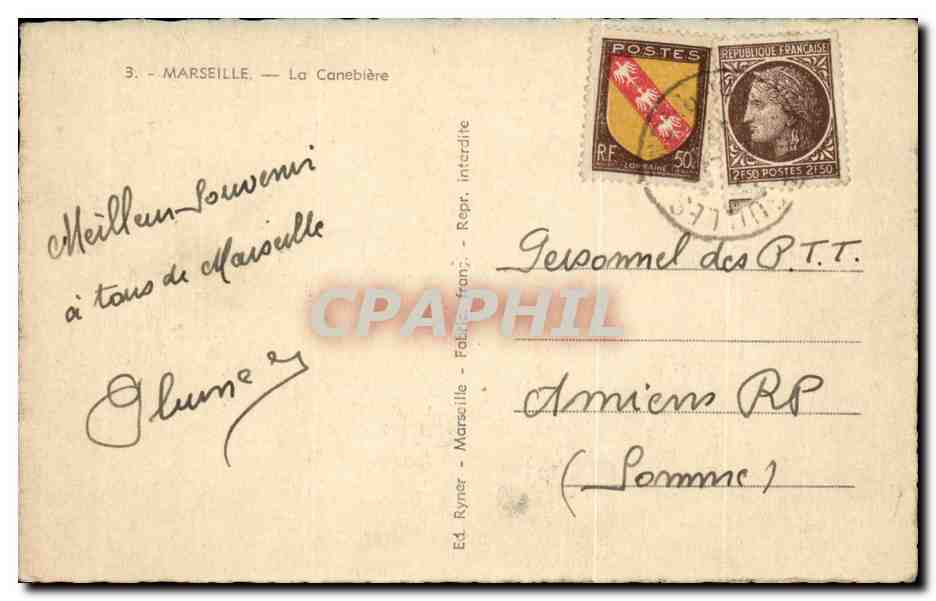 3. - MARSEILLE. — La Canebière
POSTES
RF
LORRAINE
50c
RÉPUBLIQUE FRANÇAISE
2F50 POSTES 2F50
Meilleur Souvenir
à tous de Marseille
Personnel des P.T.T.
Amiens RP
(Somme)
Ed. Ryner - Marseille - Fabric. franç. - Repr. interdite
CPAPHIL